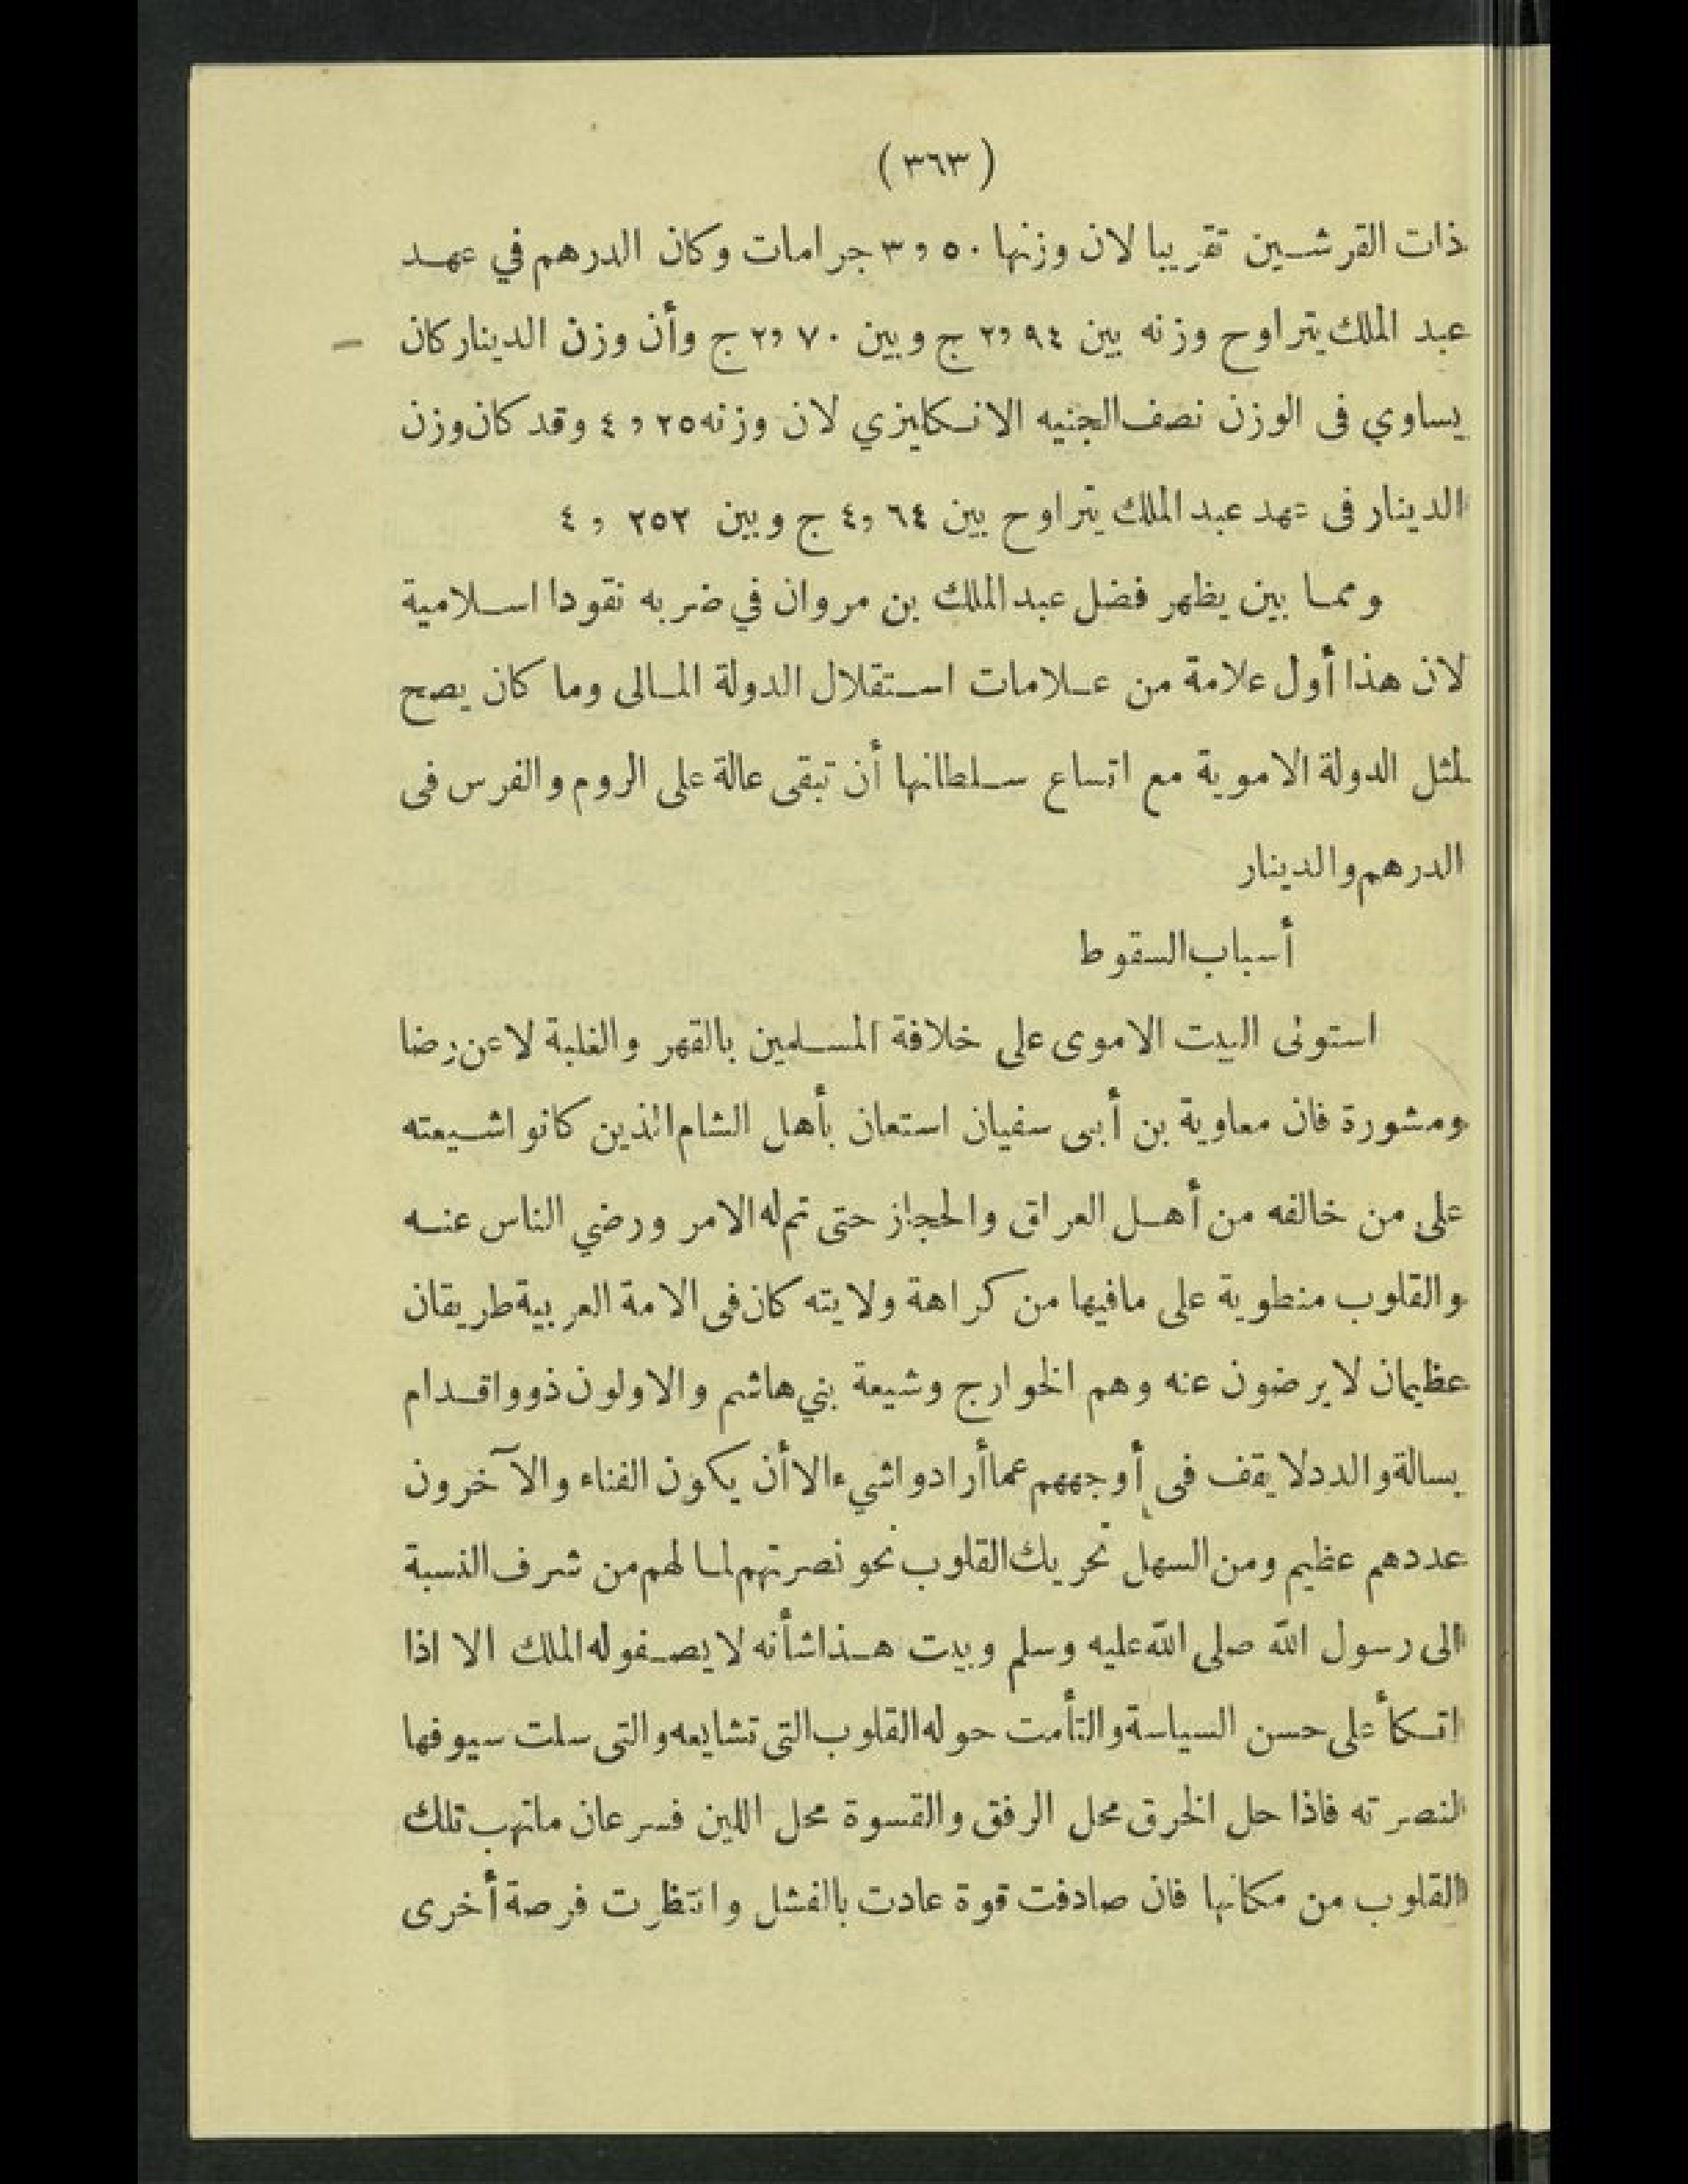 (٣٦٣)
ذات القرشين تقريبا لان وزنها ٣,٥٠ جرامات وكان الدرهم في عهد
عبد الملك يتراوح وزنه بين ٢,٩٤ ج وبين ٢,٧٠ ج وأن وزن الدينار كان
يساوي فى الوزن نصف الجنيه الانكليزي لان وزنه ٤,٢٥ وقد كان وزن
الدينار فى عهد عبد الملك يتراوح بين ٤,٦٤ ج وبين ٤,٢٥٢
ومما بين يظهر فضل عبد الملك بن مروان في ضربه نقودا اسلامية
لان هذا أول علامة من علامات استقلال الدولة المالى وما كان يصح
لمثل الدولة الاموية مع اتساع سلطانها أن تبقى عالة على الروم والفرس فى
الدرهم والدينار
أسباب السقوط
استولى البيت الاموى على خلافة المسلمين بالقهر والغلبة لا عن رضا
ومشورة فان معاوية بن أبى سفيان استعان بأهل الشام الذين كانوا شيعته
على من خالفه من أهل العراق والحجاز حتى تم له الامر ورضي الناس عنه
والقلوب منطوية على ما فيها من كراهة ولايته كان فى الامة العربية طريقان
عظيمان لا يرضون عنه وهم الخوارج وشيعة بني هاشم والاولون ذوو اقدام
بسالة والدد لا يقف فى أوجههم عما أرادوا شيء الا أن يكون الفناء والآخرون
عددهم عظيم ومن السهل تحريك القلوب نحو نصرتهم لما لهم من شرف النسبة
الى رسول الله صلى الله عليه وسلم وبيت هذا شأنه لا يصفو له الملك الا اذا
اتكأ على حسن السياسة والتأمت حوله القلوب التى تشايعه والتى سلت سيوفها
لنصرته فاذا حل الخرق محل الرفق والقسوة محل اللين فسرعان ماتهب تلك
القلوب من مكانها فان صادفت قوة عادت بالفشل وانتظرت فرصة أخرى